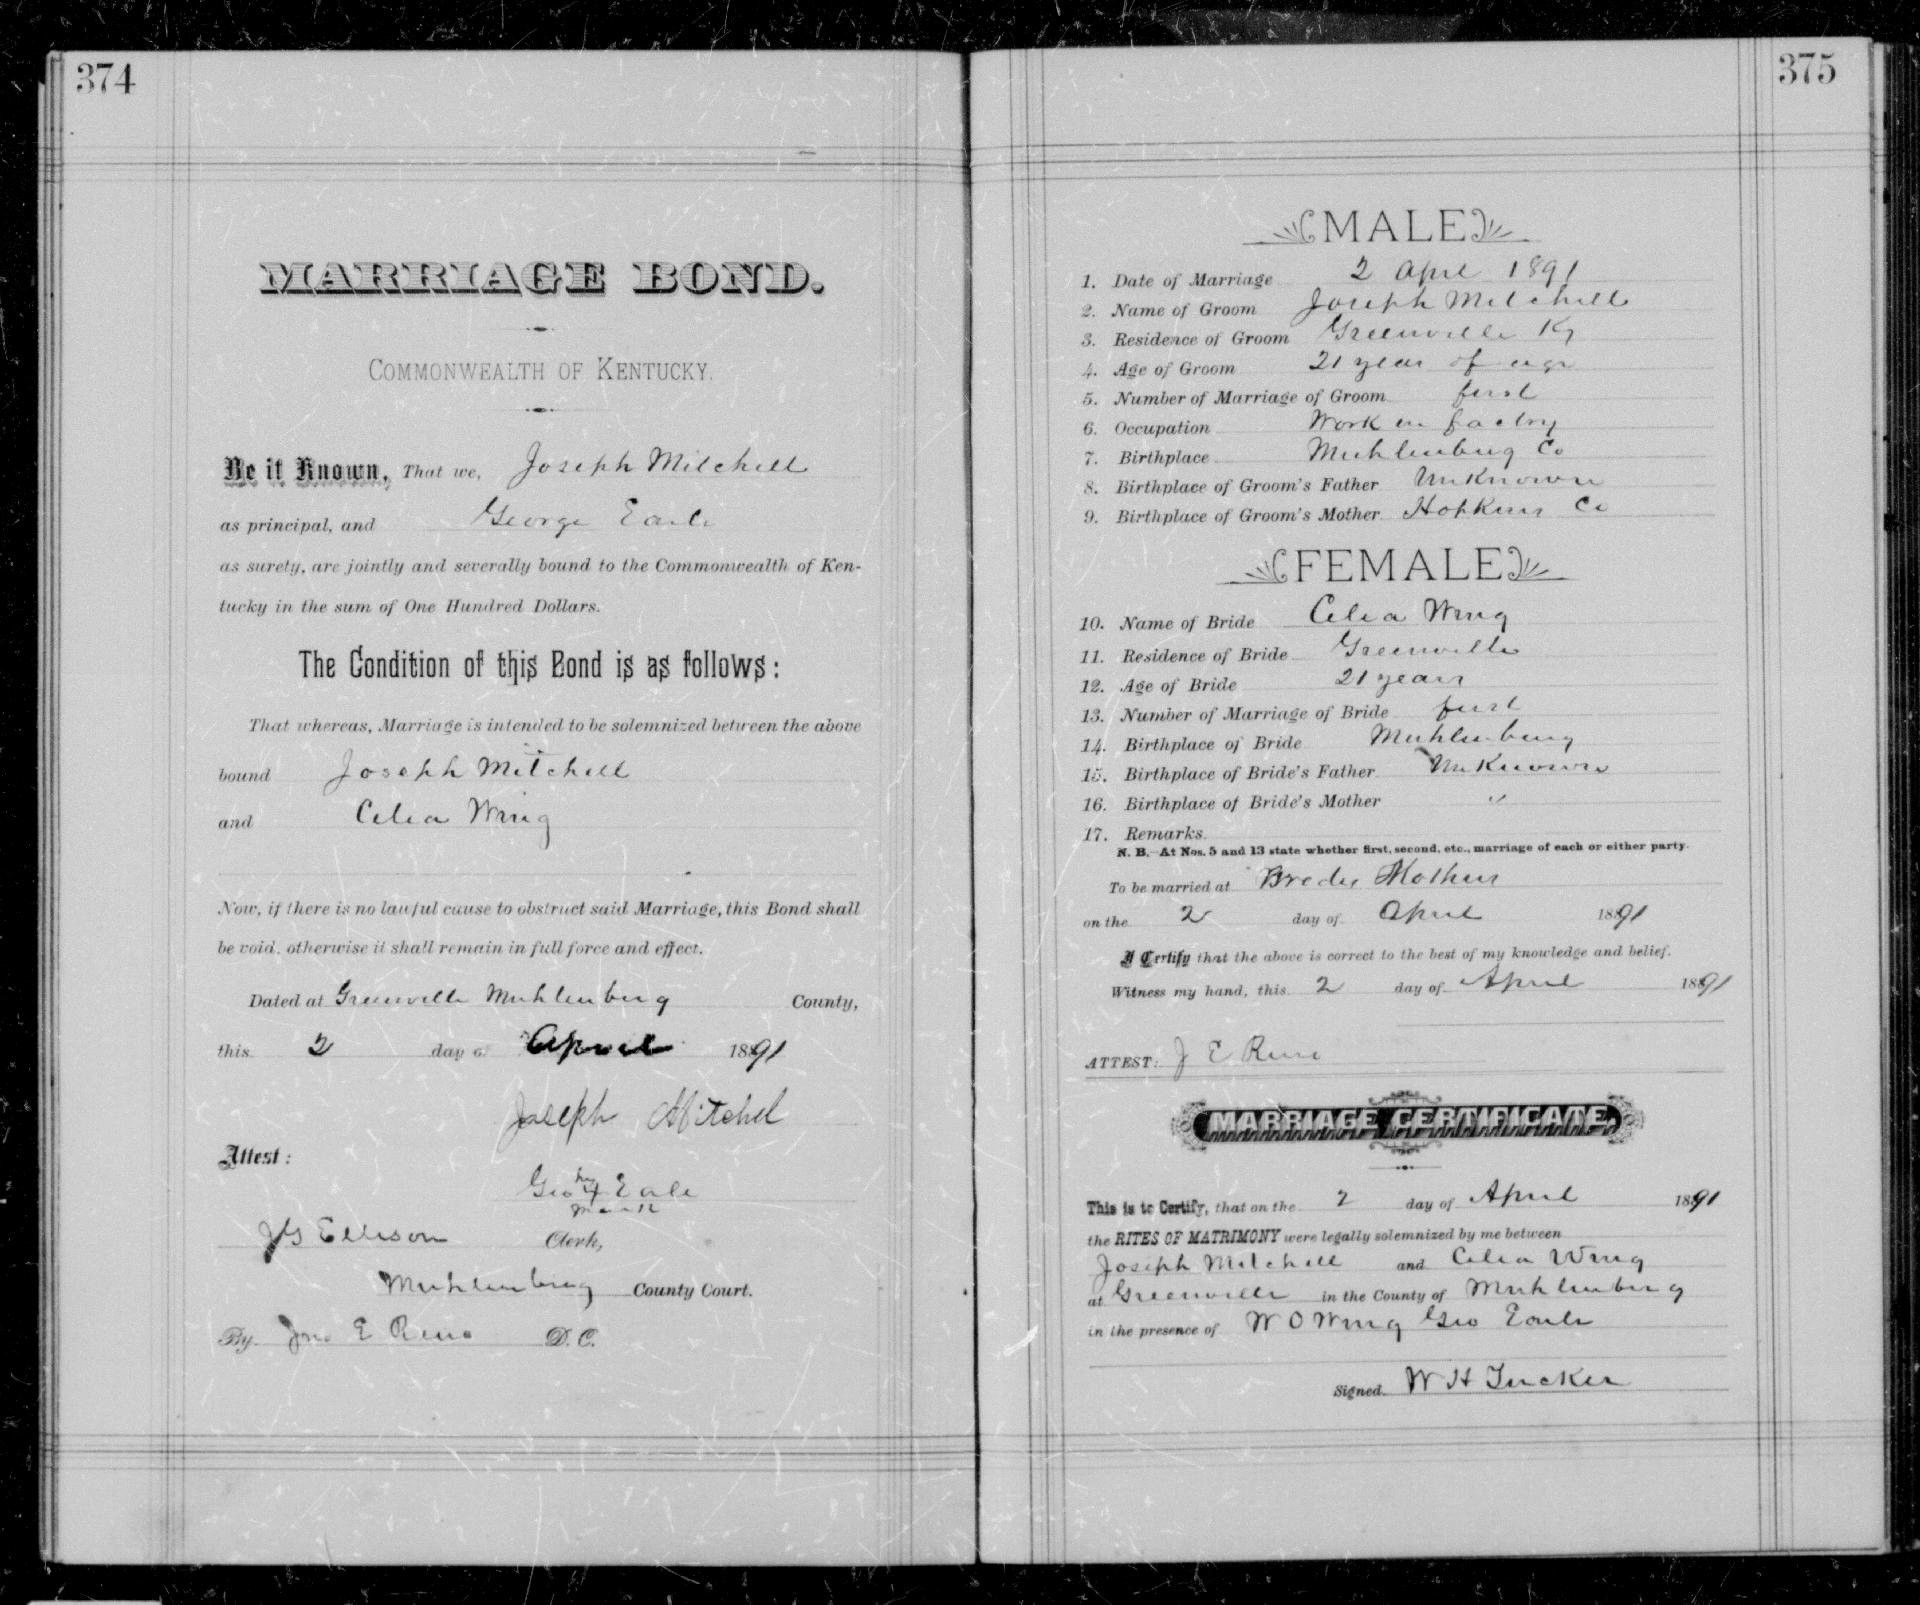 374
MARRIAGE BOND.
COMMONWEALTH OF KENTUCKY.
Be it Known, That we, Joseph Mitchell
as principal, and George Earle
as surety, are jointly and severally bound to the Commonwealth of Ken-
tucky in the sum of One Hundred Dollars.
The Condition of this Bond is as follows:
That whereas, Marriage is intended to be solemnized between the above
bound Joseph Mitchell
and Celia Wing
Now, if there is no lawful cause to obstruct said Marriage, this Bond shall
be void, otherwise it shall remain in full force and effect.
Dated at Greenville Muhlenburg County,
this 2 day of April 1891
Joseph Mitchel
Attest:
his
Geo X Earle
mark
JG Ellison Clerk,
Muhlenburg County Court.
By Jno E Reno D. C.
375
MALE
1. Date of Marriage 2 April 1891
2. Name of Groom Joseph Mitchell
3. Residence of Groom Greenville Ky
4. Age of Groom 21 year of age
5. Number of Marriage of Groom first
6. Occupation Work in factory
7. Birthplace Muhlenburg Co
8. Birthplace of Groom's Father UnKnown
9. Birthplace of Groom's Mother Hopkins Co
FEMALE
10. Name of Bride Celia Wing
11. Residence of Bride Greenville
12. Age of Bride 21 years
13. Number of Marriage of Bride first
14. Birthplace of Bride Muhlenburg
15. Birthplace of Bride's Father UnKnown
16. Birthplace of Bride's Mother "
17. Remarks
N. B.—At Nos. 5 and 13 state whether first, second, etc., marriage of each or either party.
To be married at Brides Mothers
on the 2 day of April 1891
I Certify that the above is correct to the best of my knowledge and belief.
Witness my hand, this 2 day of April 1891
ATTEST: J E Reno
MARRIAGE CERTIFICATE.
This is to Certify, that on the 2 day of April 1891
the RITES OF MATRIMONY were legally solemnized by me between
Joseph Mitchell and Celia Wing
at Greenville in the County of Muhlenburg
in the presence of W O Wing Geo Earle
Signed W H Tucker